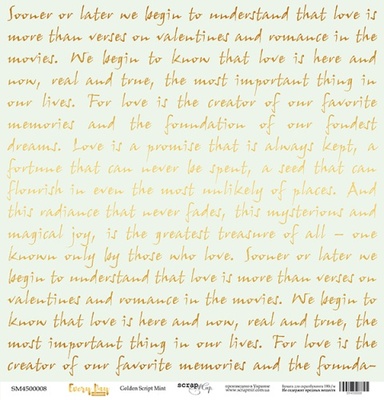 Sooner or later we begin to understand that love is
more than verses on valentines and romance in the
movies. We begin to know that love is here and
now, real and true, the most important thing in
our lives. For love is the creator of our favorite
memories and the foundation of our fondest
dreams. Love is a promise that is always kept, a
fortune that can never be spent, a seed that can
flourish in even the most unlikely of places. And
this radiance that never fades, this mysterious and
magical joy, is the greatest treasure of all – one
known only by those who love. Sooner or later we
begin to understand that love is more than verses on
valentines and romance in the movies. We begin to
know that love is here and now, real and true, the
most important thing in our lives. For love is the
creator of our favorite memories and the founda-
SM4500008 Every Day Golden Script Mint scrap